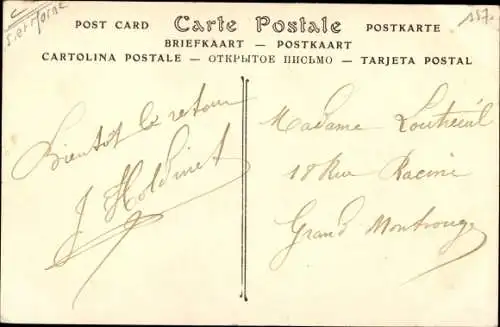 S. et Marne
157
POST CARD Carte Postale POSTKARTE
BRIEFKAART — POSTKAART
CARTOLINA POSTALE — ОТКРЫТОЕ ПИСЬМО — TARJETA POSTAL
Bientôt le retour
J. Holdinet
Madame Loutreuil
18 Rue Racine
Grand Montrouge